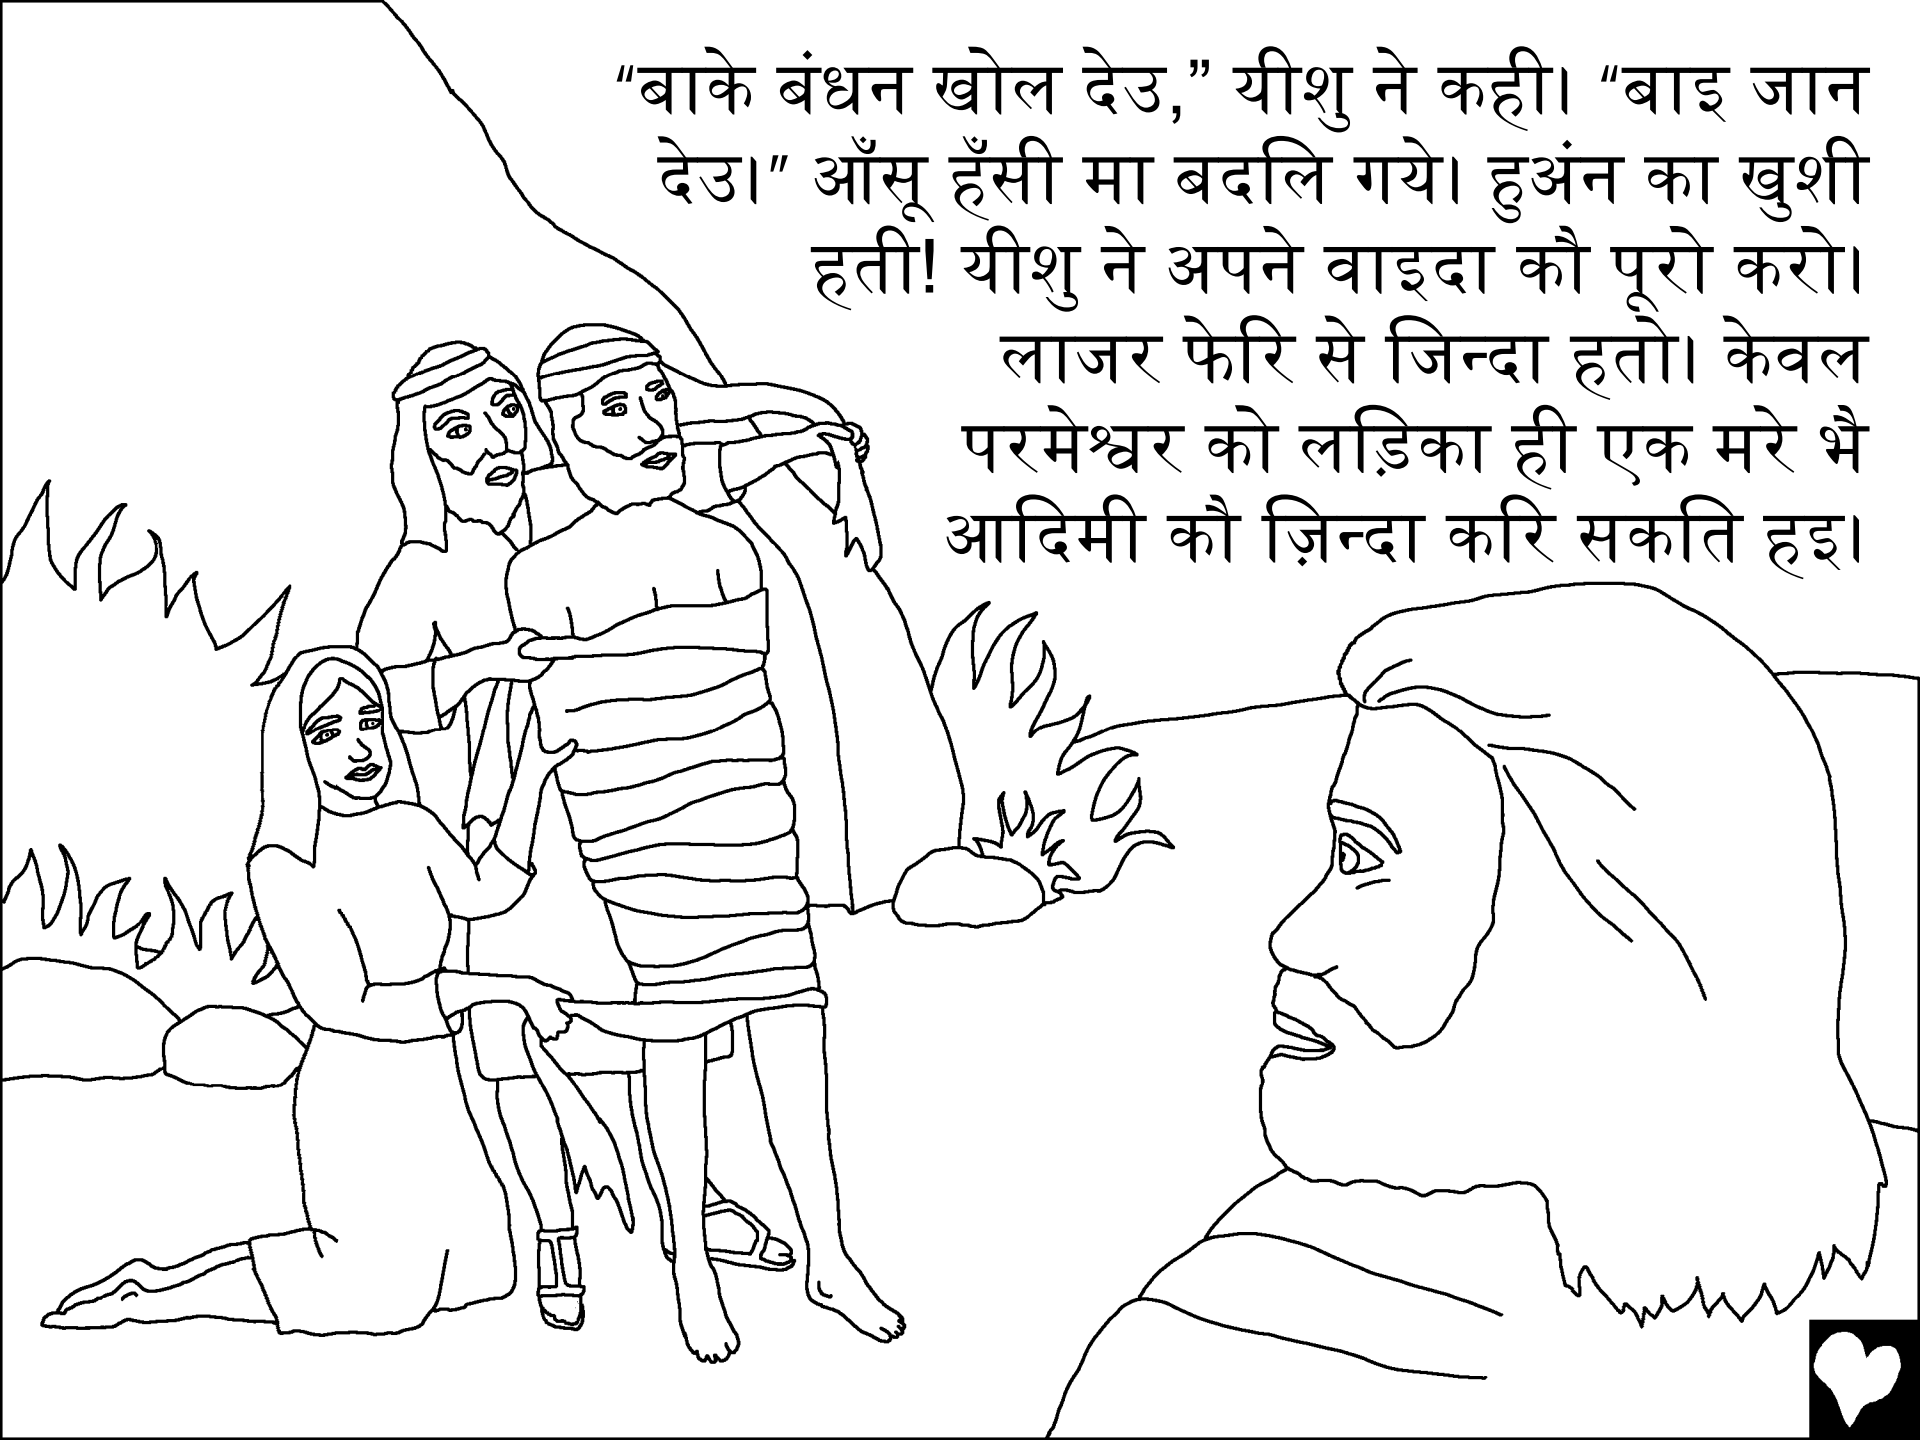 “बाके बंधन खोल देउ,” यीशु ने कही। “बाइ जान
देउ।” आँसू हँसी मा बदलि गये। हुअंन का खुशी
हती! यीशु ने अपने वाइदा कौ पूरो करो।
लाजर फेरि से जिन्दा हतो। केवल
परमेश्वर को लड़िका ही एक मरे भै
आदिमी कौ ज़िन्दा करि सकति हइ।